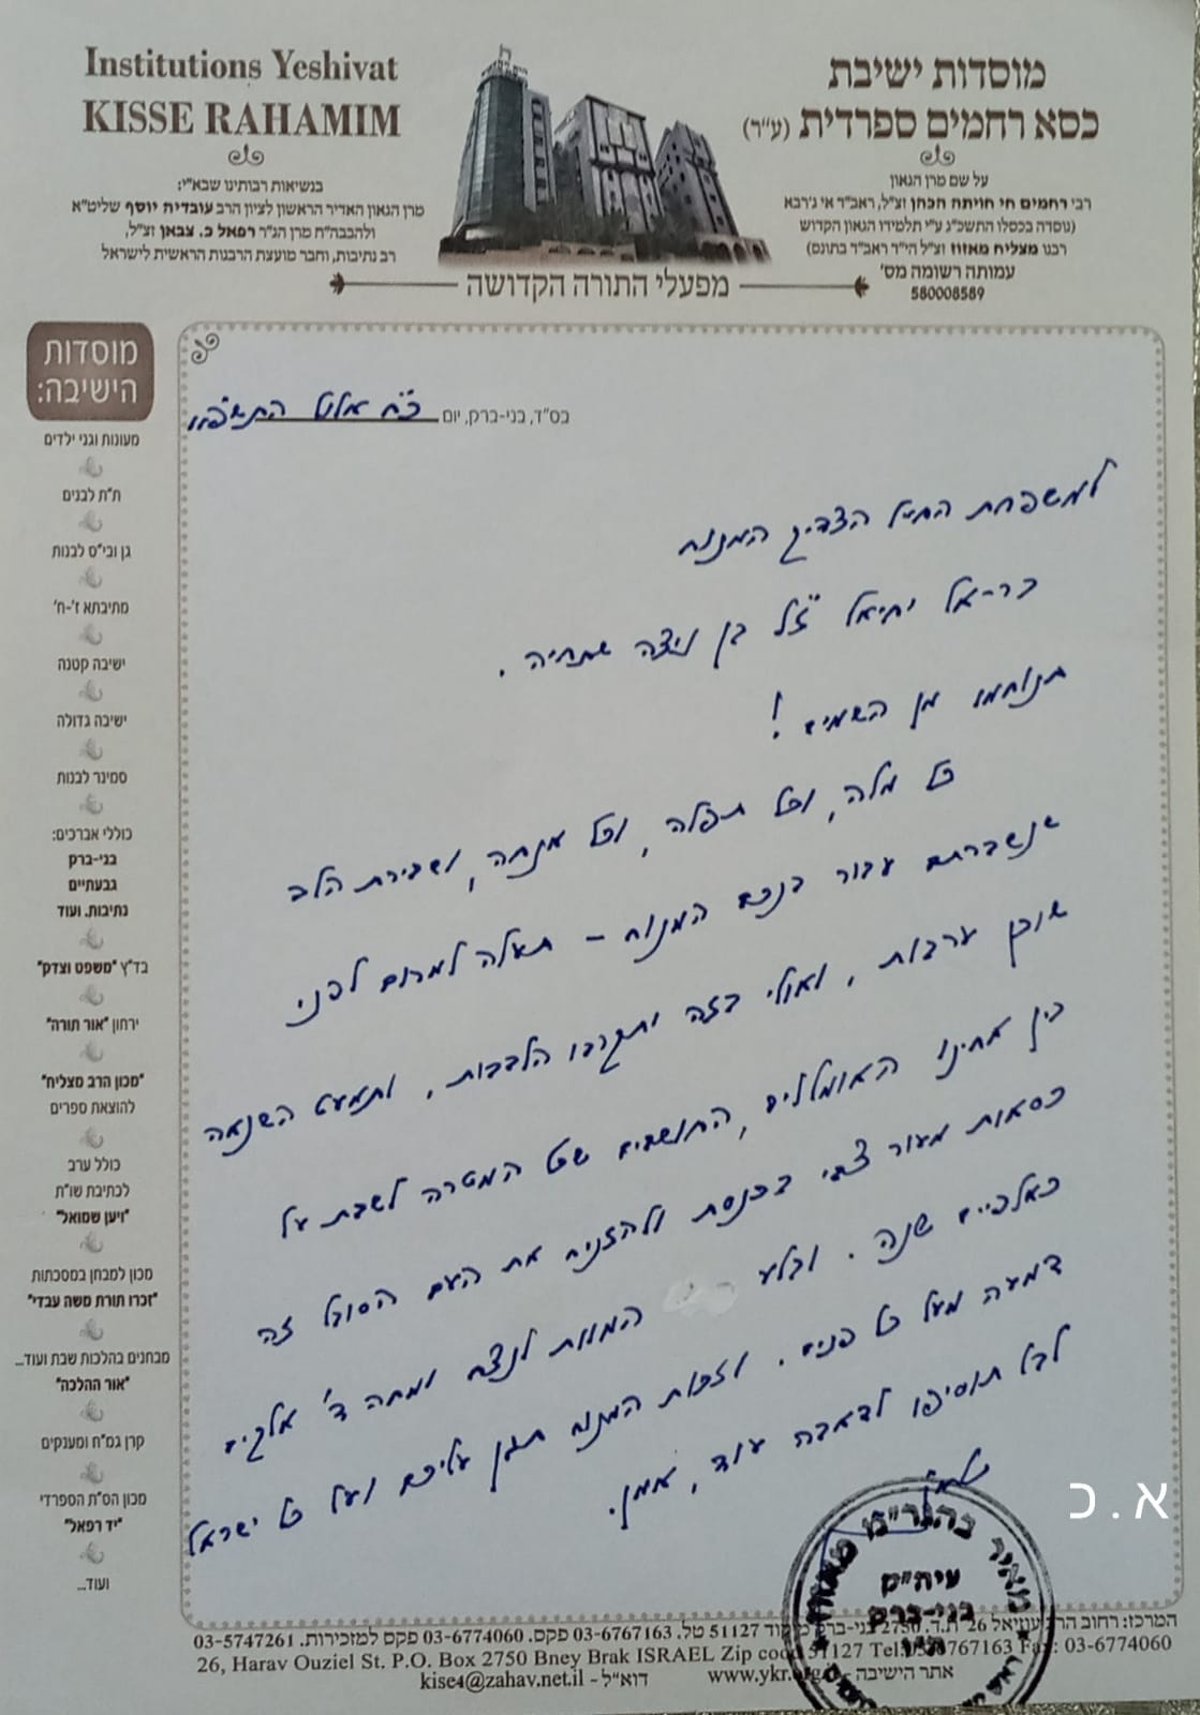 Institutions Yeshivat
KISSE RAHAMIM
בנשיאות רבותינו שבא"י:
מרן הגאון האדיר הראשון לציון הרב עובדיה יוסף שליט"א
ולהבבה"ח מרן הג"ר רפאל כ. צבאן זצ"ל,
רב נתיבות, וחבר מועצת הרבנות הראשית לישראל
מוסדות ישיבת
כסא רחמים ספרדית (ע"ר)
על שם מרן הגאון
רבי רחמים חי חויתה הכהן זצ"ל, ראב"ד אי ג'רבא
(נוסדה בכסלו התשכ"ג ע"י תלמידו הגאון הקדוש
רבנו מצליח מאזוז זצ"ל הי"ד ראב"ד בתונס)
עמותה רשומה מס'
580008589
מפעלי התורה הקדושה
מוסדות
הישיבה:
מעונות וגני ילדים
ת"ת לבנים
גן ובי"ס לבנות
מתיבתא ז'-ח'
ישיבה קטנה
ישיבה גדולה
סמינר לבנות
כוללי אברכים:
בני-ברק
גבעתיים
נתיבות. ועוד
בד"ץ "משפט וצדק"
ירחון "אור תורה"
"מכון הרב מצליח"
להוצאת ספרים
כולל ערב
לכתיבת שו"ת
"ויען שמואל"
מכון למבחן במסכתות
"זכרו תורת משה עבדי"
מבחנים בהלכות שבת ועוד...
"אור ההלכה"
קרן גמ"ח ומענקים
מכון הס"ת הספרדי
"יד רפאל"
ועוד...
בס"ד, בני-ברק, יום כ"ח אלול
למשפחת החייל הצדיק המנוח
בר-אל יחיאל ז"ל בן ניצה שתחיה.
תנוחמו מן השמים!
כל מלה, וכל תפלה, וכל מנחה, ושבירת הלב
שנשברתם עבור בנכם המנוח - תעלה למרום לפני
שוכן ערבות, ואולי בזה יתקרבו הלבבות, ותמעט השנאה
בין אחינו האומללים, החושבים שכל המטרה לשבת על
כסאות מעור צבי בכנסת ולהזניח את העם הסובל זה
כאלפיים שנה. ובלע המוות לנצח ומחה ד' אלקים
דמעה מעל כל פנים. וזכות המנוח תגן עליכם ועל כל ישראל
לבל תוסיפו לדאבה עוד, אמן.
מאיר בהגר"מ מאזוז
עיה"ק
בני-ברק
א.כ
המרכז: רחוב הרב עוזיאל 26 ת.ד. 2750 בני-ברק מיקוד 51127 טל. 03-6767163 פקס. 03-6774060 פקס למזכירות. 03-5747261
26, Harav Ouziel St. P.O. Box 2750 Bney Brak ISRAEL Zip cood 51127 Tel. Fax: 03-6774060
אתר הישיבה - דוא"ל - kise4@zahav.net.il